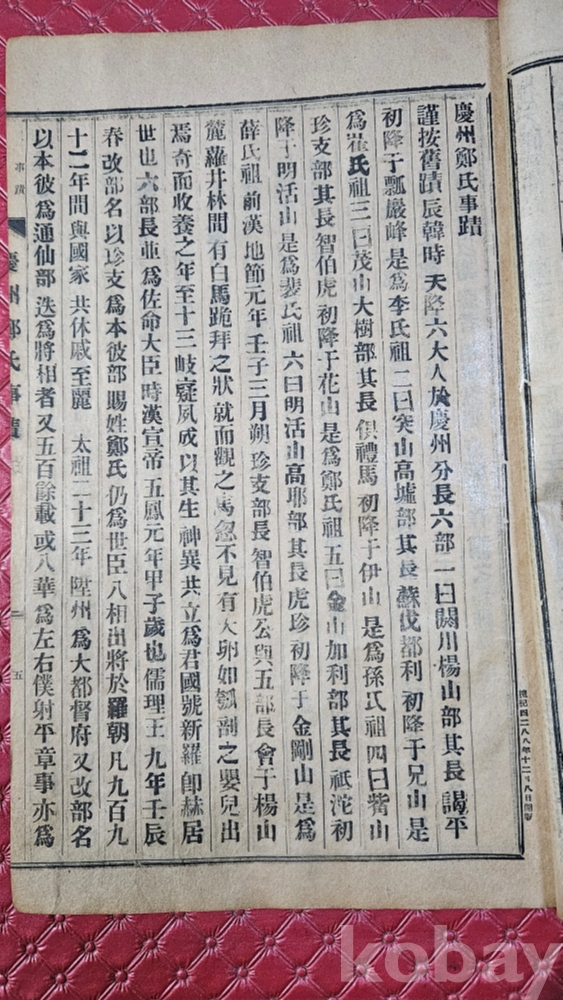 慶州鄭氏事蹟
謹按舊蹟辰韓時 天降六大人於慶州分長六部一曰閼川楊山部其長 謁平
初降于瓢巖峰是爲李氏祖二曰突山高墟部其長 蘇伐都利 初降于兄山是
爲崔氏祖三曰茂山大樹部其長 俱禮馬 初降于伊山 是爲孫氏祖四曰觜山
珍支部其長 智伯虎 初降于花山 是爲鄭氏祖五曰金山加利部其長 祗沱初
降于明活山是爲裴氏祖 六曰明活山高耶部其長虎珍 初降于 金剛山 是爲
薛氏祖 前漢地節元年壬子三月朔 珍支部長 智伯虎公與五部長會于楊山
麓 蘿井林間 有白馬跪拜之狀 就而觀之 馬忽不見有大卵如瓠剖之嬰兒出
焉奇而收養之年至十三岐嶷夙成以其生 神異共立爲君國號新羅 卽赫居
世也 六部長並爲佐命大臣 時漢宣帝 五鳳元年甲子歲也儒理王 九年壬辰
春改部名 以珍支 爲本彼部 賜姓鄭氏 仍爲世臣 入相出將於 羅朝 凡九百九
十二年間與國家 共休戚至麗 太祖二十三年 陞州爲大都督府 又改部名
以本彼爲通仙部 迭爲將相者又五百餘載 或入華 爲左右僕射平章事亦爲
事蹟
慶州鄭氏事蹟
五
檀紀四二八八年十二月八日開
kobay